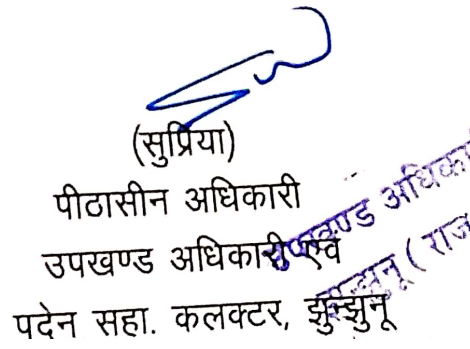 (सुप्रिया)
पीठासीन अधिकारी
उपखण्ड अधिकारी एवं
पदेन सहा. कलक्टर, झुन्झुनू
उपखण्ड अधिकारी
झुन्झुनू (राज